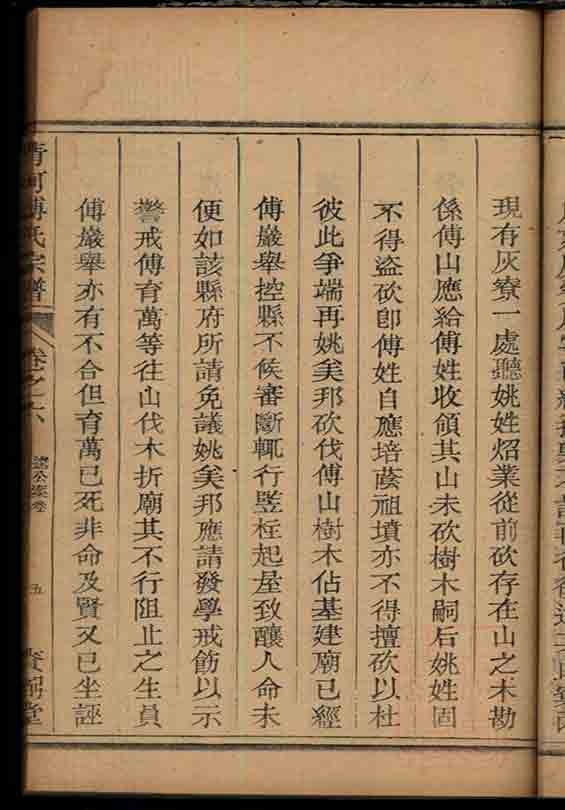 現有灰寮一處聽姚姓炤業從前砍存在山之木勘
係傅山應給傅姓收領其山未砍樹木嗣后姚姓固
不得盜砍卽傅姓自應培蔭祖墳亦不得擅砍以杜
彼此爭端再姚美邦砍伐傅山樹木佔基建廟已經
傅巖舉控縣不候審斷輒行竪柱起屋致釀人命未
便如該縣府所請免議姚美邦應請發學戒飭以示
警戒傅育萬等往山伐木折廟其不行阻止之生員
傅巖舉亦有不合但育萬已死非命及賢又已坐誣
清河傅氏宗譜
卷之六
五